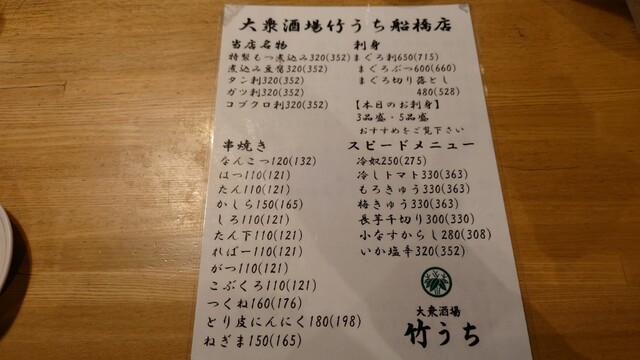 大衆酒場竹うち船橋店
当店名物
特製もつ煮込み320(352)
煮込み豆腐320(352)
タン刺320(352)
ガツ刺320(352)
コブクロ刺320(352)
刺身
まぐろ刺650(715)
まぐろぶつ600(660)
まぐろ切り落とし
480(528)
【本日のお刺身】
3品盛・5品盛
おすすめをご覧下さい
串焼き
なんこつ120(132)
はつ110(121)
たん110(121)
かしら150(165)
しろ110(121)
たん下110(121)
ればー110(121)
がつ110(121)
こぶくろ110(121)
つくね160(176)
とり皮にんにく180(198)
ねぎま150(165)
スピードメニュー
冷奴250(275)
冷しトマト330(363)
もろきゅう330(363)
梅きゅう330(363)
長芋千切り300(330)
小なすからし280(308)
いか塩辛320(352)
大衆酒場
竹うち